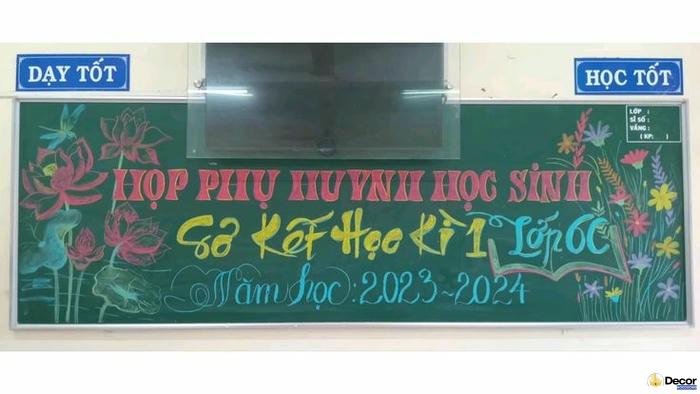 DẠY TỐT
HỌC TỐT
LỚP :
SĨ SỐ :
VẮNG :
( KP: )
HỌP PHỤ HUYNH HỌC SINH
Sơ Kết Học Kì 1 Lớp 6C
Năm học: 2023-2024
Decor